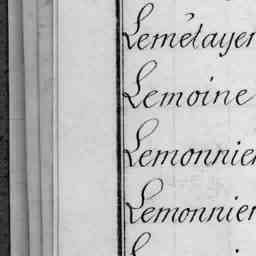 Lemétayer
Lemoine
Lemonnier
Lemonnier